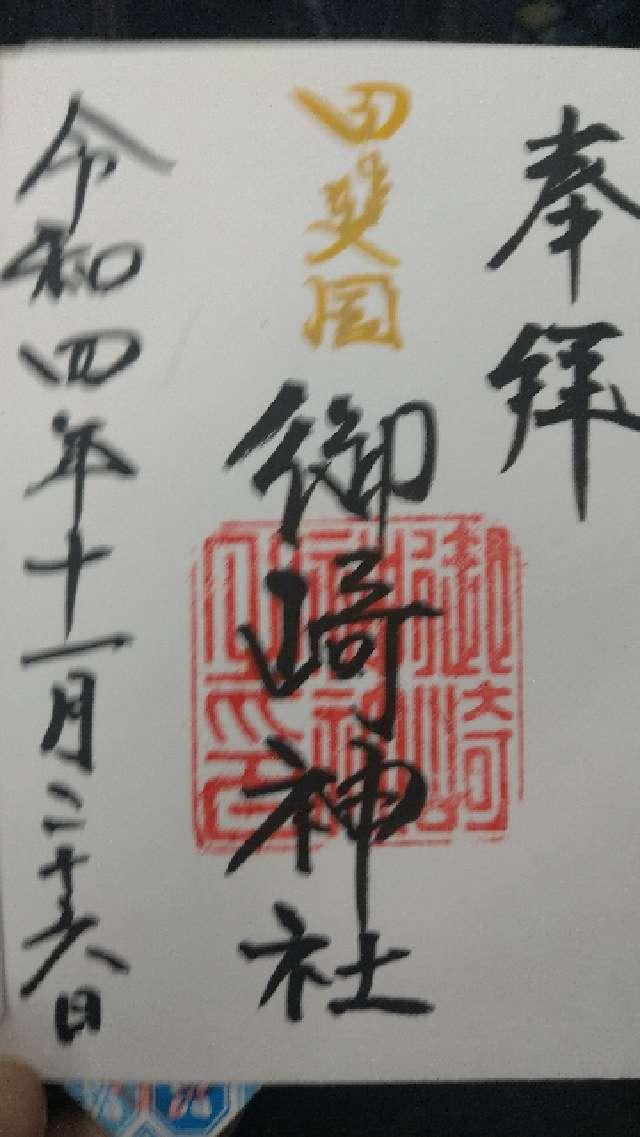 奉拝
甲斐国
御崎神社
令和四年十一月二十六日